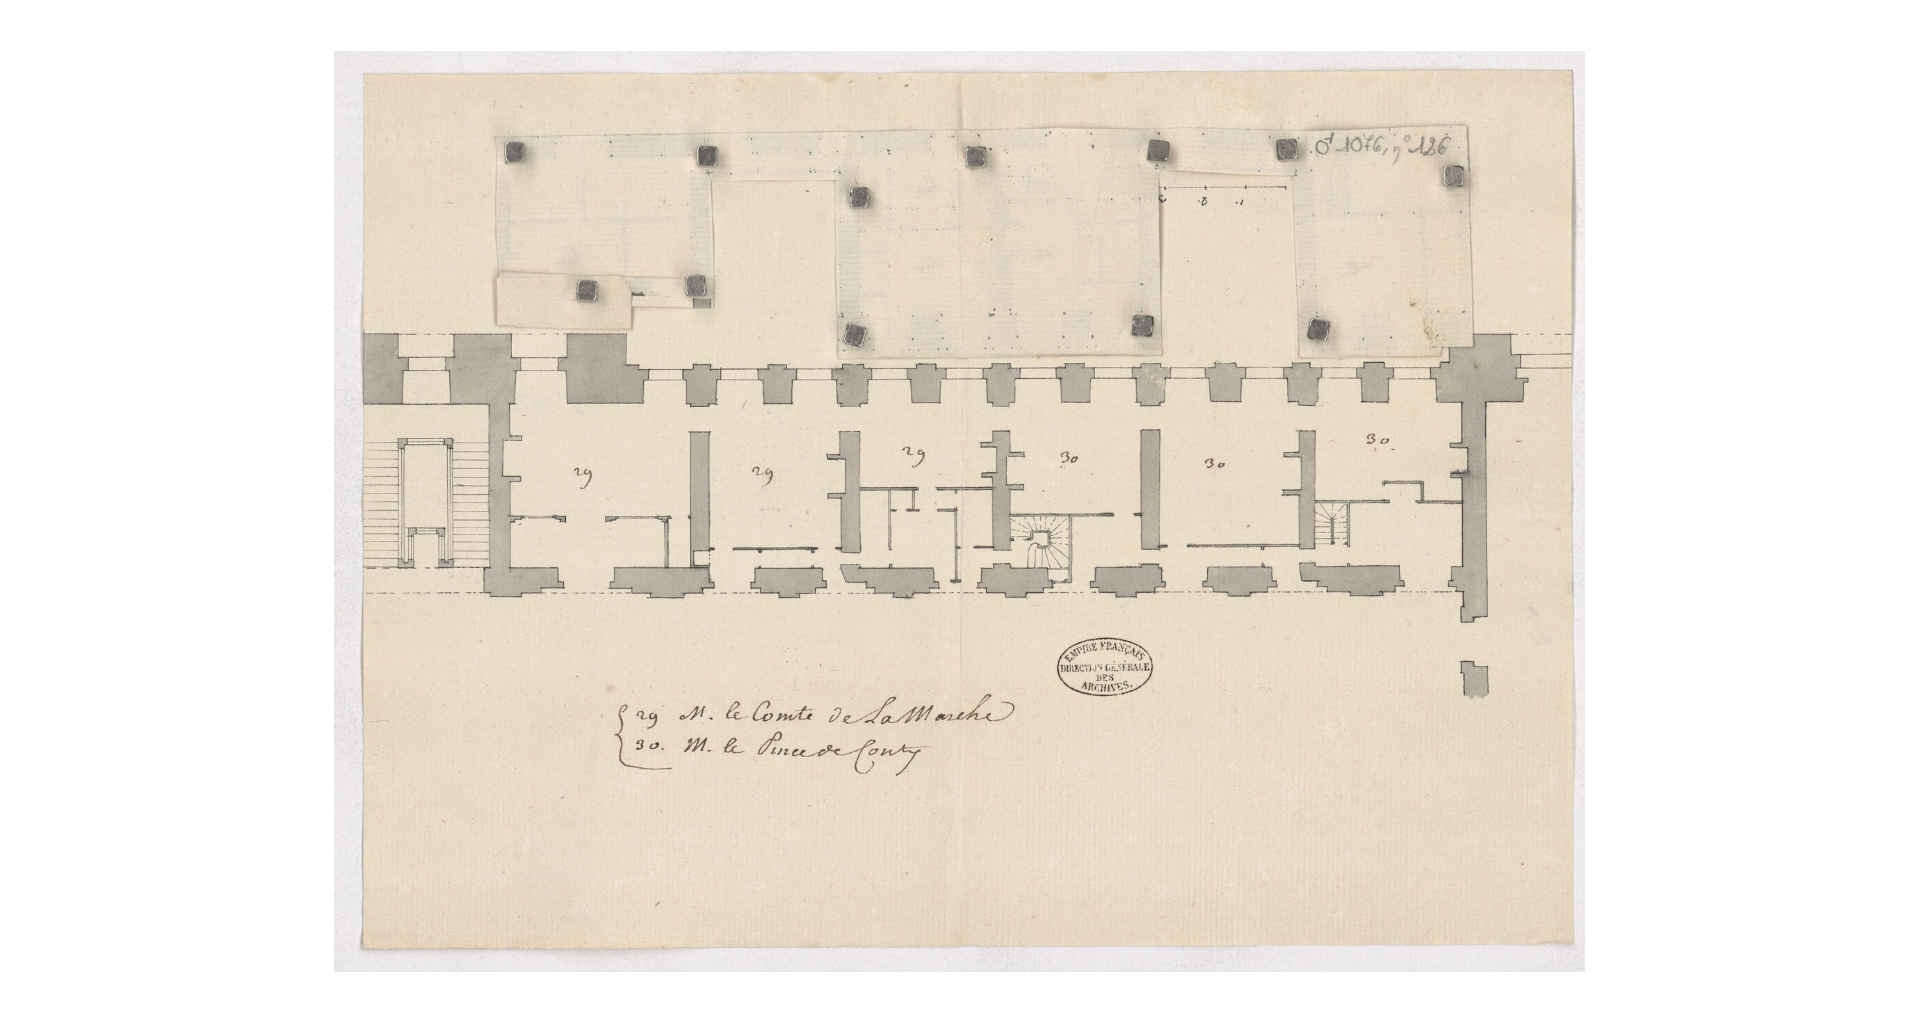 O¹ 1076, n° 126
3 2 1.
29 29 29 30 30 30
EMPIRE FRANÇAIS
DIRECTION GÉNÉRALE
DES
ARCHIVES.
29 M. le Comte de La Marche
30. M. le Prince de Conty